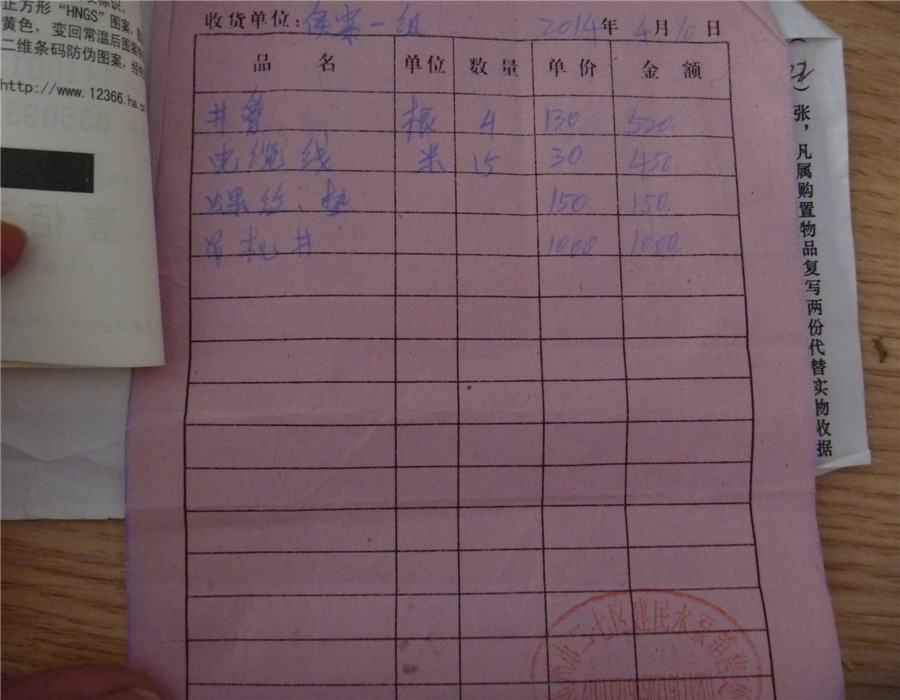 正方形“HNGS”图案,
黄色,变回常温后图案
二维条码防伪图案,经
http://www.12366.ha.c
收货单位:侯寨一组 2014年4月10日
品 名 单位 数量 单价 金 额
井管 根 4 130 520.
电缆线 米 15 30 450
螺丝、垫 150 150.
吊机井 1000 1000.
张,凡属购置物品复写两份代替实物收据
二七区建民水泵销售